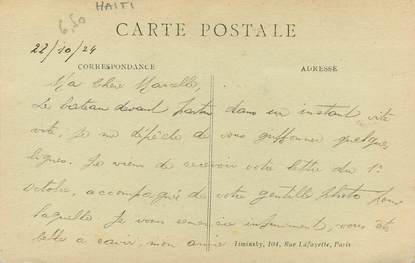 HAITI
6,50
CARTE POSTALE
22/10/24
CORRESPONDANCE
ADRESSE
Ma Chère Marcelle,
Le bateau devant partir dans un instant, vite
vite, je me dépêche de vous griffonner quelques
lignes. Je viens de recevoir votre lettre du 1º
Octobre, accompagnée de votre gentille photo pour
laquelle je vous remercie infiniment, vous êtes
belle à ravir, mon amie
Timinsky, 104, Rue Lafayette, Paris